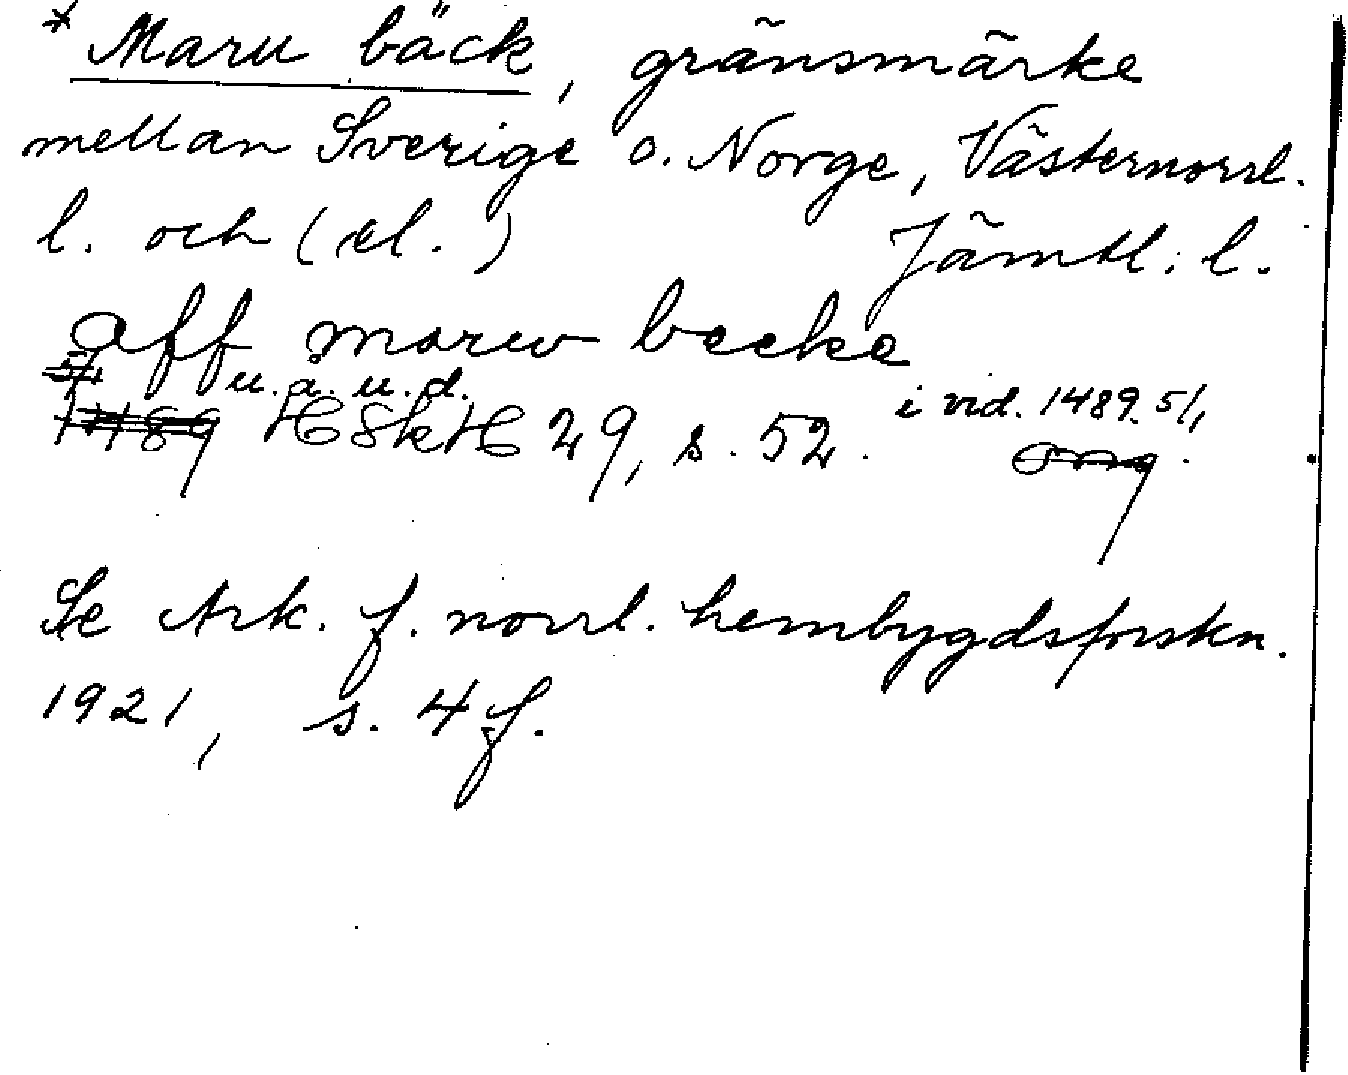 * Maru bäck, gränsmärke
mellan Sverige o. Norge, Västernorrl.
l. och (el.) Jämtl. l.
aff marw becke
u. å. u. d. i vid. 1489. 5/1
1489 HSkH 29, s. 52.
Se Ark. f. norrl. hembygdsforskn.
1921, s. 4 f.